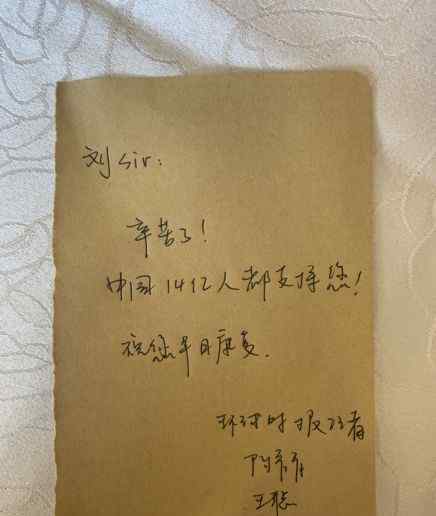 刘sir：
辛苦了！
中国14亿人都支持您！
祝您早日康复．
环球时报记者
王聪